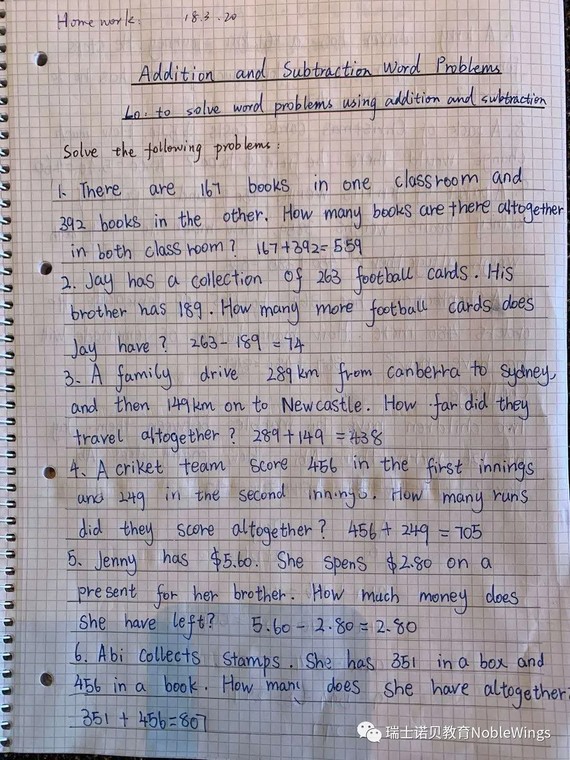 Home work: 18.3.20
Addition and Subtraction Word Problems
Lo: to solve word problems using addition and subtraction
Solve the following problems:
1. There are 167 books in one classroom and
392 books in the other. How many books are there altogether
in both class room? 167+392=559
2. Jay has a collection of 263 football cards. His
brother has 189. How many more football cards does
Jay have? 263-189=74
3. A family drive 289km from canberra to Sydney,
and then 149km on to Newcastle. How far did they
travel altogether? 289+149=438
4. A criket team score 456 in the first innings
and 249 in the second innings. How many runs
did they score altogether? 456+249=705
5. Jenny has $5.60. She spens $2.80 on a
present for her brother. How much money does
she have left? 5.60-2.80=2.80
6. Abi collects stamps. She has 351 in a box and
456 in a book. How many does she have altogether?
351+456=807
瑞士诺贝教育NobleWings